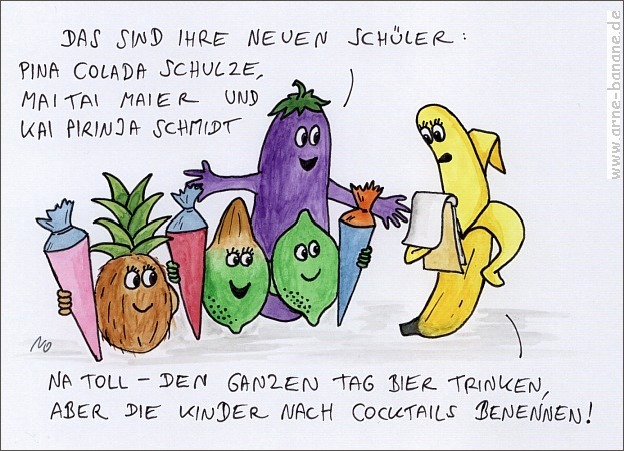 DAS SIND IHRE NEUEN SCHÜLER:
PINA COLADA SCHULZE,
MAI TAI MAIER UND
KAI PIRINJA SCHMIDT
NA TOLL – DEN GANZEN TAG BIER TRINKEN,
ABER DIE KINDER NACH COCKTAILS BENENNEN!
www.arne-banane.de